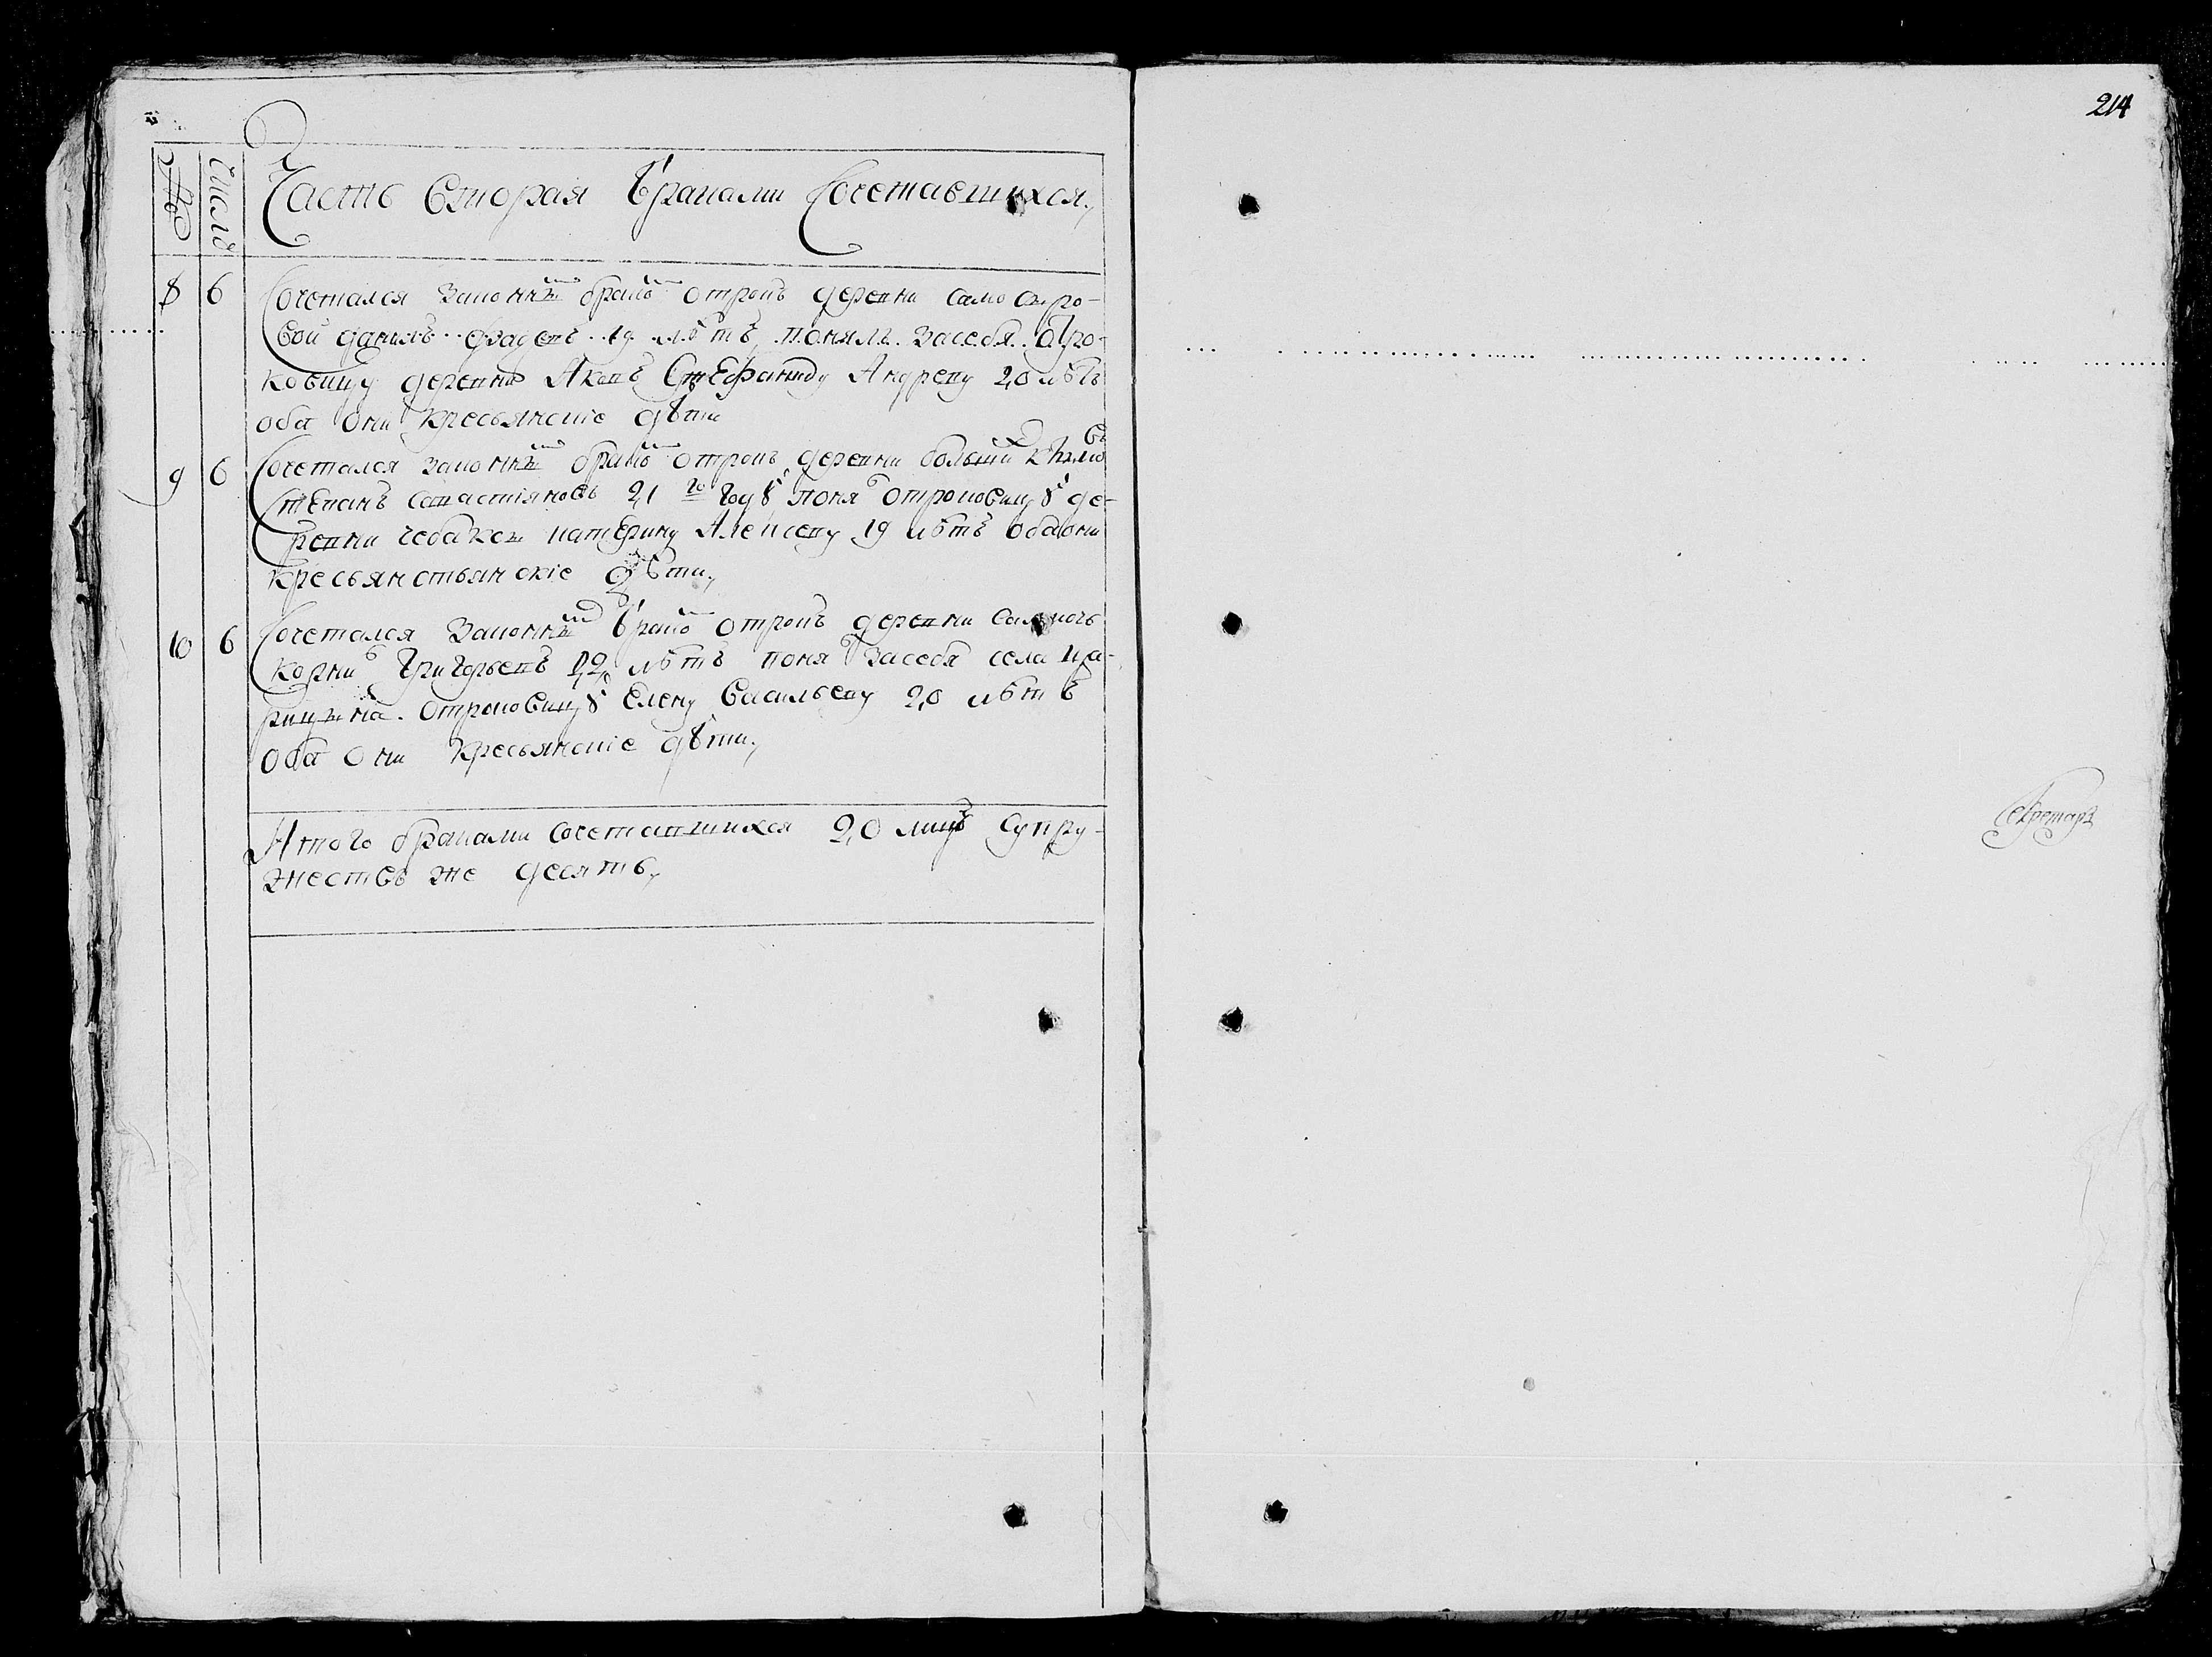 214
№ Число Часть вторая браками сочетавшихся,
8 6 Сочетался законнымъ бракомъ отрокъ деревни самосыро-
вой данилъ фадеевъ 19 лѣтъ, понялъ засебя отро-
ковицу деревни Акаевъ Стефаниду Андрееву 20 лѣтъ
оба они кресьянскіе дѣти
9 6 Сочетался законнымъ бракомъ отрокъ деревни большихъ
Степанъ савастіяновъ 21 го году понялъ отроковицу де-
ревни чебаксы катерину Алексееву 19 лѣтъ оба они
кресьянстьянскіе дѣти,
10 6 Сочетался законнымъ бракомъ отрокъ деревни
корнилъ григорьевъ 19 лѣтъ понялъ засебя села ца-
рицына отроковицу Елену Васильеву 20 лѣтъ
оба они кресьянскіе дѣти,
Итого браками сочетавшихся 20 лицъ супру-
жествъ же десять,
Секретарь